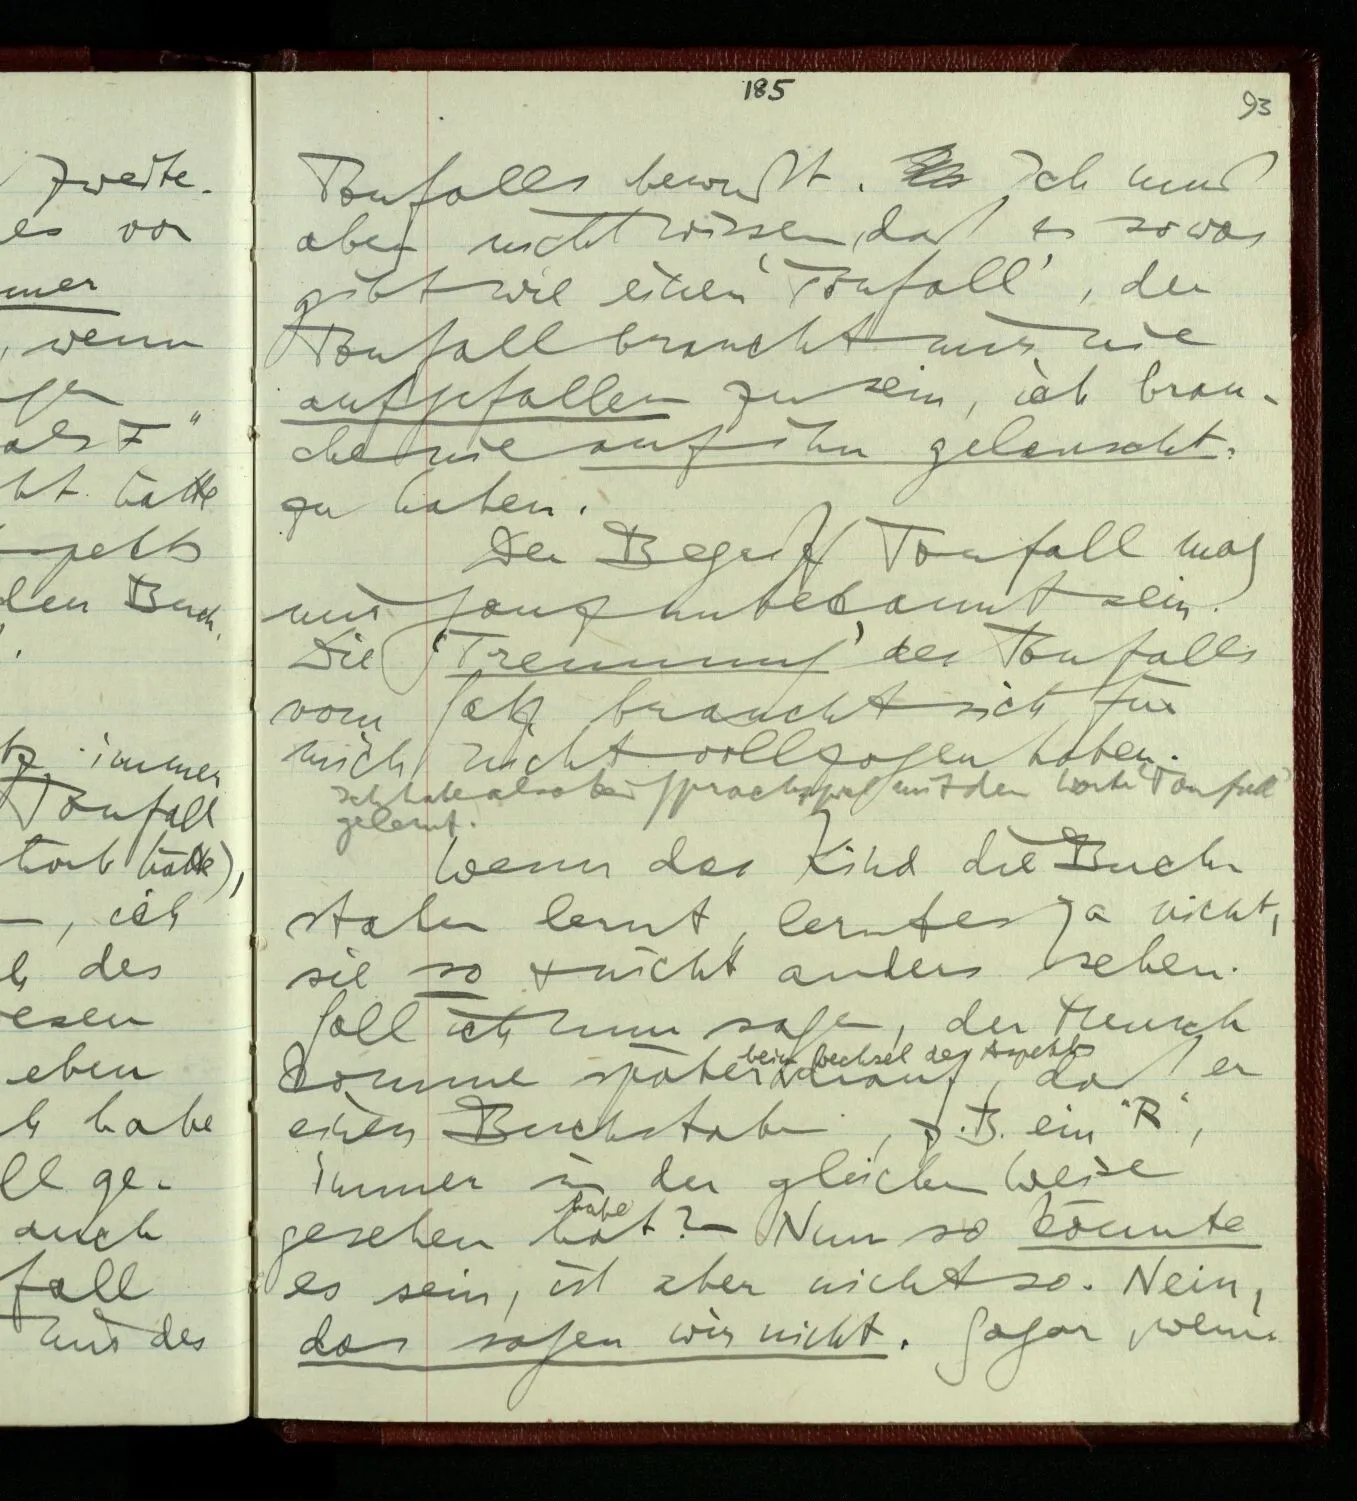 zweite.
es vor
mer
, wenn
als F"
ht hätte
spekts
den Buch.
tz immer
Tonfall
hätte),
–, ich
h des
esen
eben
h habe
ll ge-
auch
fall
mir des
185
93
Tonfalls bewußt. Ich muß
aber nicht wissen, daß es sowas
gibt wie einen 'Tonfall', der
Tonfall braucht mir nie
aufgefallen zu sein, ich brau-
che nie auf ihn gelauscht
zu haben.
Der Begriff Tonfall mag
mir ganz unbekannt sein.
Die 'Trennung' des Tonfalls
vom Satz braucht sich für
mich nicht vollzogen haben.
Ich habe also kein Sprachspiel mit dem Worte 'Tonfall'
gelernt.
Wenn das Kind die Buch-
staben lernt, lernt es ja nicht,
sie so & nicht anders sehen.
Soll ich nun sagen, der Mensch
beim Wechsel des Aspekts
komme später drauf, daß er
einen Buchstaben, z.B. ein "R",
immer in der gleichen Weise
habe
gesehen hat? – Nun so könnte
es sein, ist aber nicht so. Nein,
das sagen wir nicht. Sogar, wenn